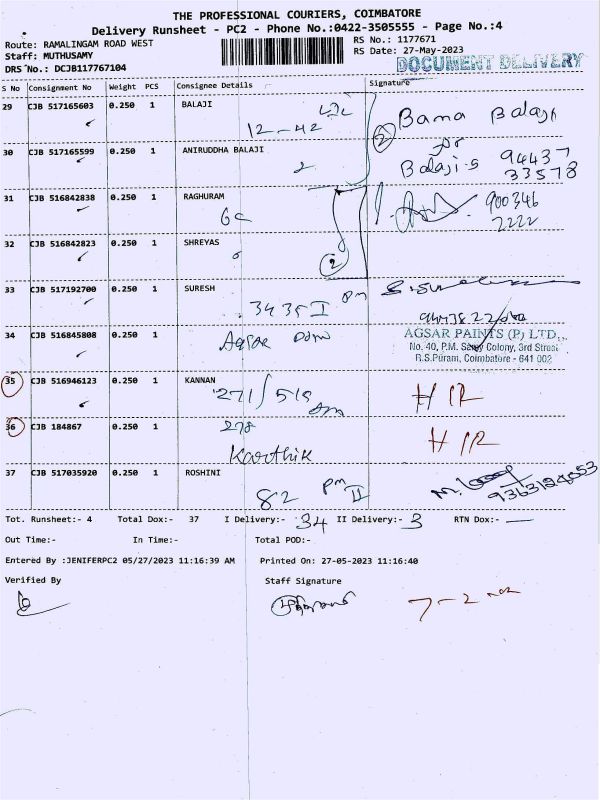 THE PROFESSIONAL COURIERS, COIMBATORE
Delivery Runsheet - PC2 - Phone No.:0422-3505555 - Page No.:4
Route: RAMALINGAM ROAD WEST
Staff: MUTHUSAMY
DRS No.: DCJB117767104
RS No.: 1177671
RS Date: 27-May-2023
DOCUMENT DELIVERY
S No Consignment No Weight PCS Consignee Details Signature
29 CJB 517165603 0.250 1 BALAJI
12-42
Bama Balaji
30 CJB 517165599 0.250 1 ANIRUDDHA BALAJI
2
for
Balaji-S 94437
33578
31 CJB 516842838 0.250 1 RAGHURAM
6c
900346
2222
32 CJB 516842823 0.250 1 SHREYAS
2
33 CJB 517192700 0.250 1 SURESH
3435 I pm
34 CJB 516845808 0.250 1
Agsar
AGSAR PAINTS (P) LTD.,
No. 40, P.M. Samy Colony, 3rd Street
R.S.Puram, Coimbatore - 641 002
35 CJB 516946123 0.250 1 KANNAN
271/515
36 CJB 184867 0.250 1 278
Karthik
37 CJB 517035920 0.250 1 ROSHINI
82 pm II
Tot. Runsheet:- 4 Total Dox:- 37 I Delivery:- 34 II Delivery:- 3 RTN Dox:-
Out Time:- In Time:- Total POD:-
Entered By :JENIFERPC2 05/27/2023 11:16:39 AM Printed On: 27-05-2023 11:16:40
Verified By Staff Signature